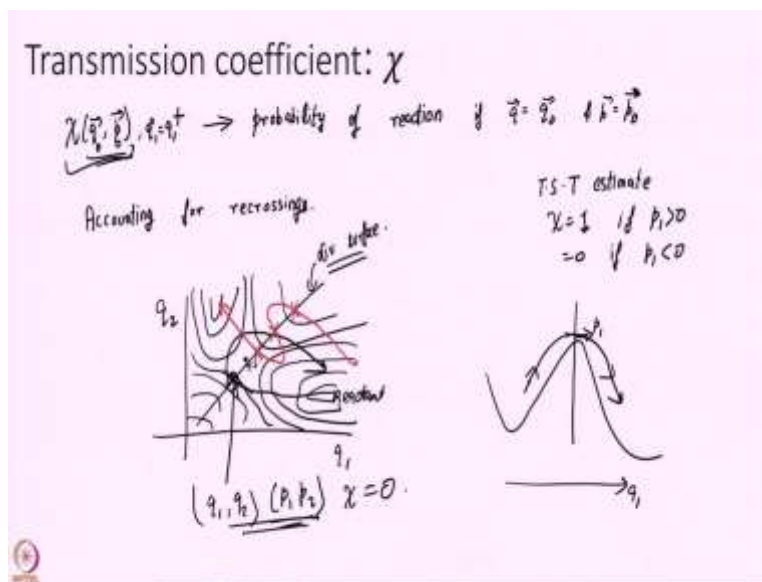 Transmission coefficient: χ
χ(q⃗₀, p⃗₀), q₁=q₁⁺ → probability of reaction if q⃗ = q⃗₀ & p⃗ = p⃗₀
Accounting for recrossings.
T.S.T estimate
χ = 1 if p₁>0
=0 if p₁<0
div surface.
q₂
p₁
Reactant
q₁
q₁
(q₁, q₂) (p₁ p₂) χ = 0.